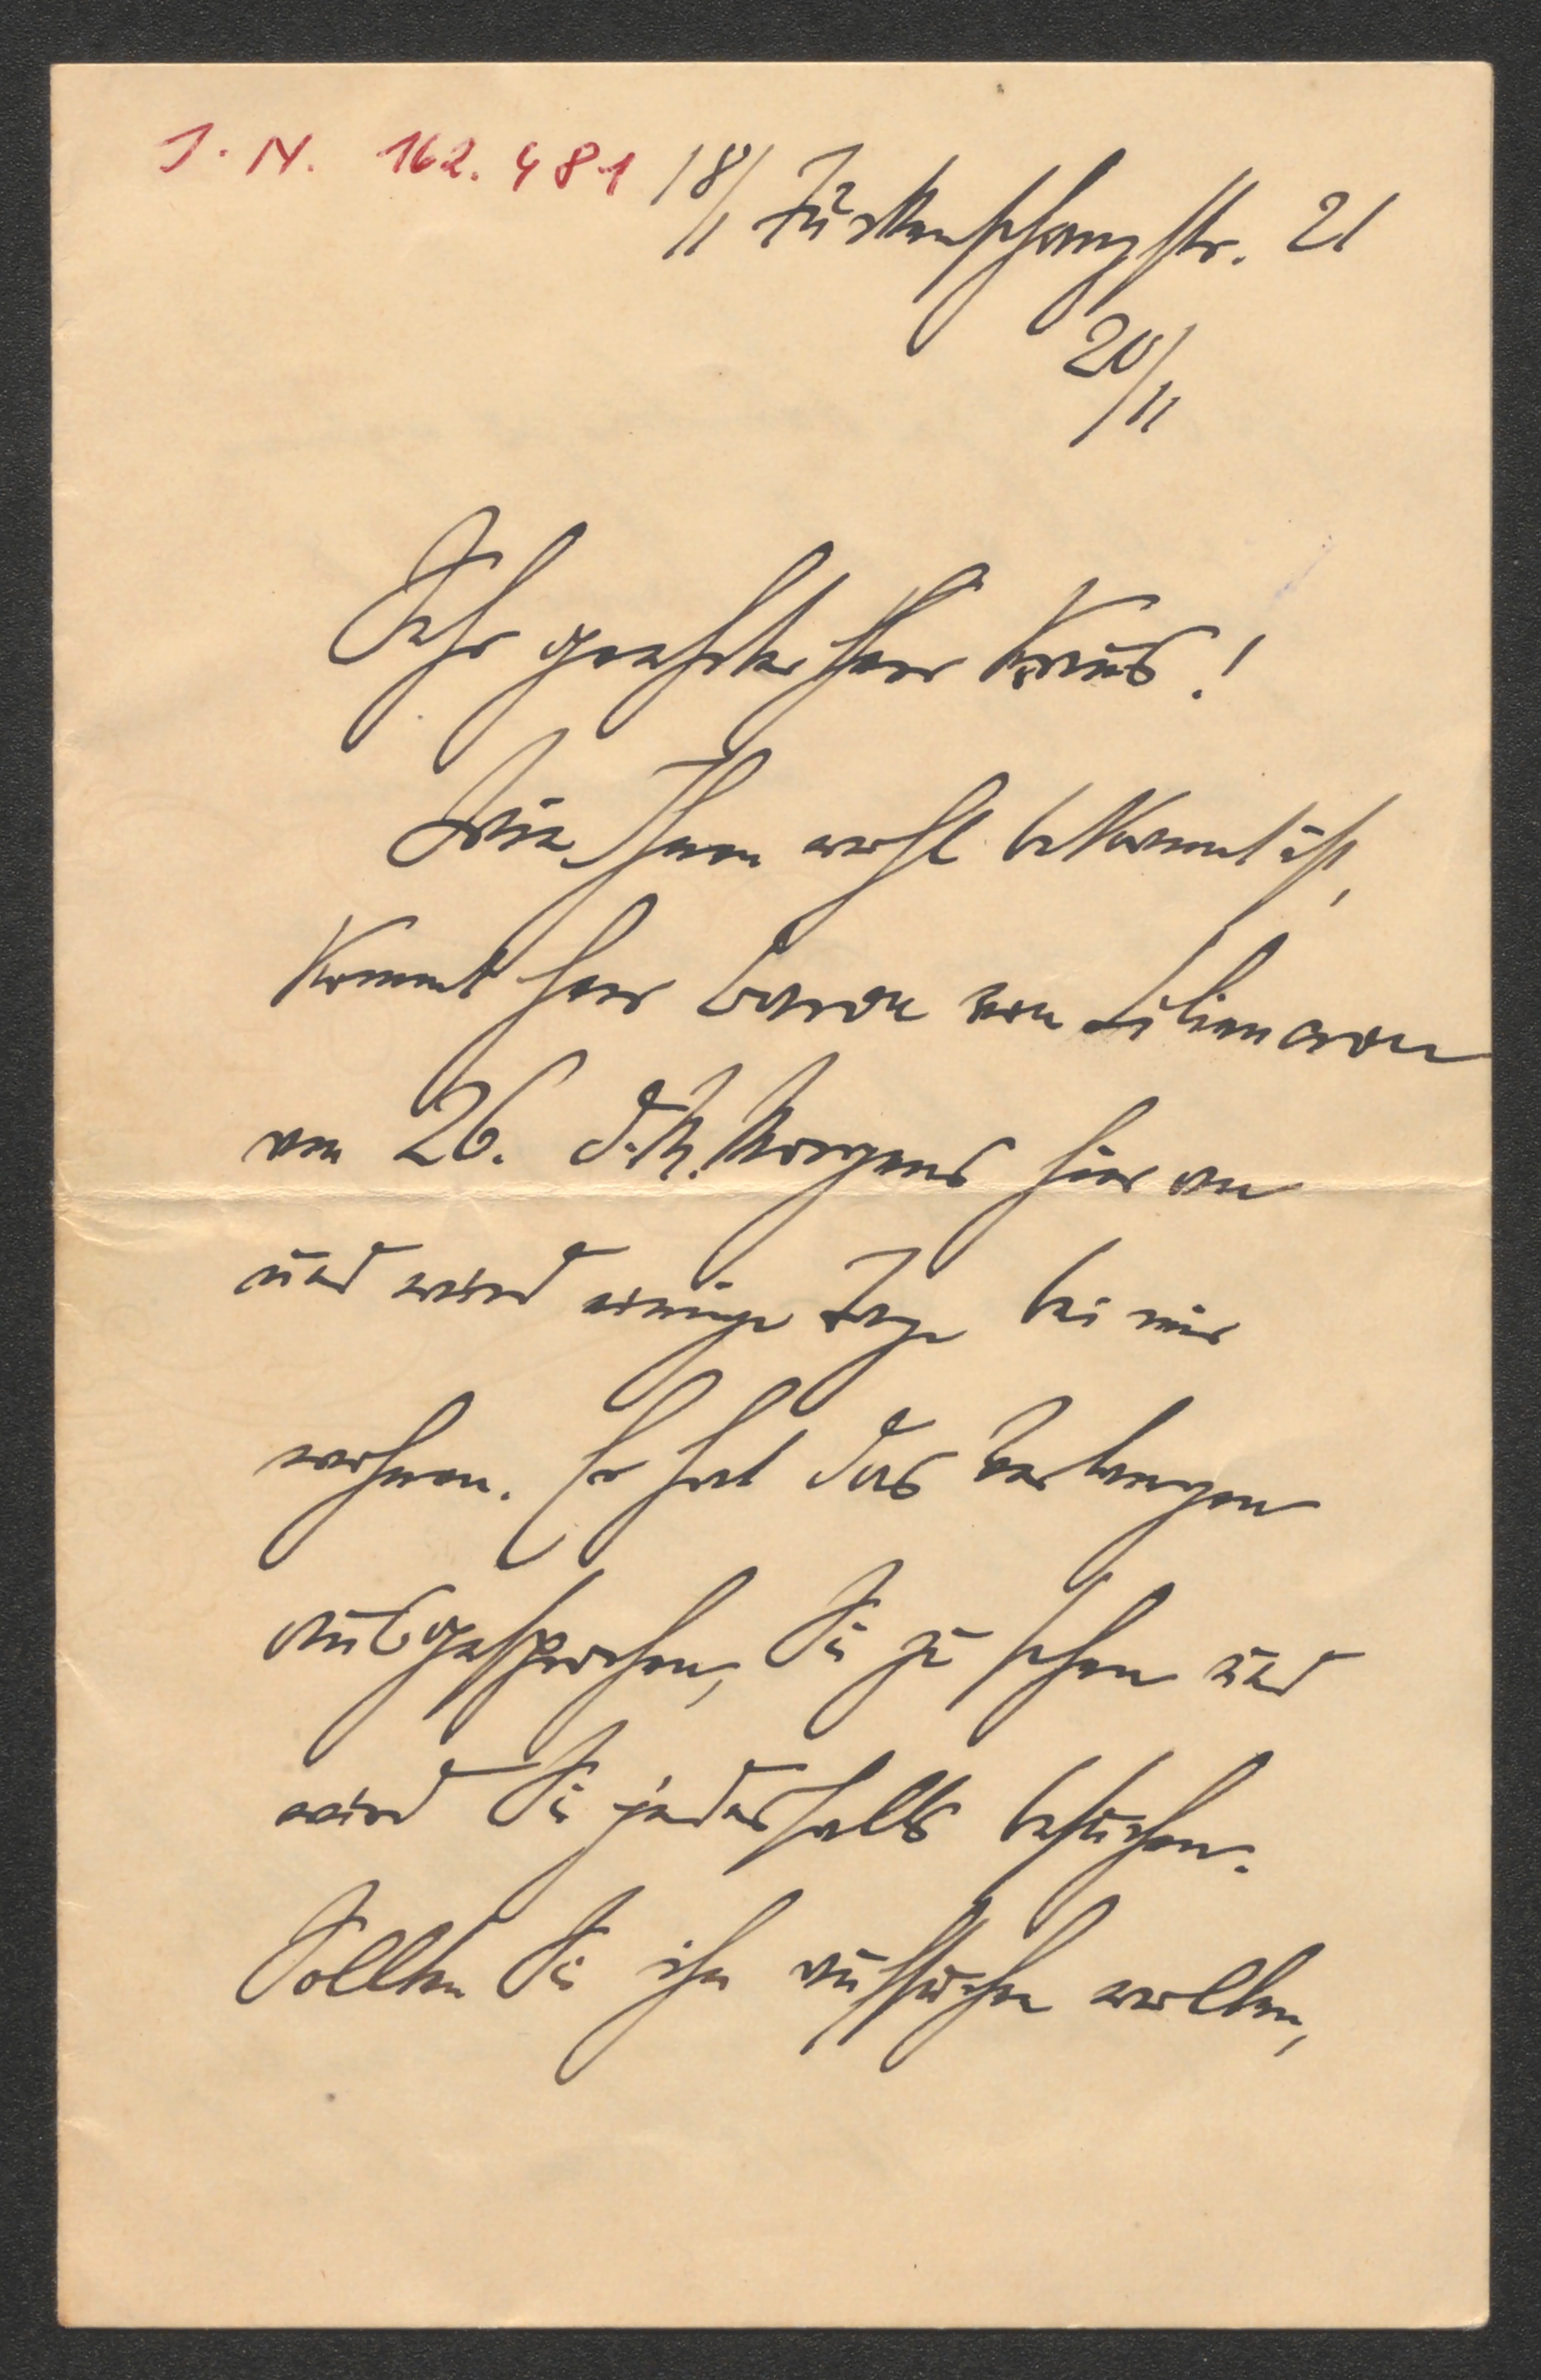 J. N. 162.481
18/11 Türkenschanzstr. 21
20/11
Sehr geehrter Herr Kraus!
Wie Ihnen wohl bekannt ist,
kommt Herr Baron von Liliencron
am 26. d. M. Morgens hier an
und wird einige Tage bei mir
wohnen. Er hat das Verlangen
ausgesprochen, Sie zu sehen und
wird Sie jedesfalls besuchen.
Sollten Sie ihn aufsuchen wollen,